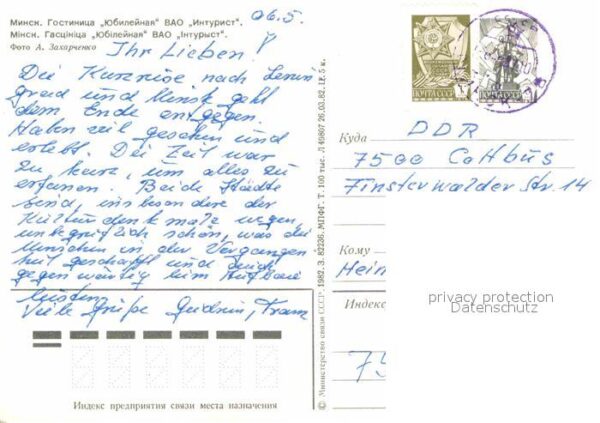 Минск. Гостиница „Юбилейная" ВАО „Интурист".
Мінск. Гасцініца „Юбілейная" ВАО „Інтурыст".
Фото А. Захарченко
06.5.
Ihr Lieben!
Die Kurzreise nach Lenin
grad und Minsk geht
dem Ende entgegen.
Haben viel gesehen und
erlebt. Die Zeit war
zu kurz, um alles zu
erfassen. Beide Städte
sind, insbesondere der
Kulturdenkmale wegen,
unbegreiflich schön, was die
Menschen in der Vergangen
heit geschafft und auch
gegenwärtig beim Aufbau
leisten.
Viele Grüße Gudrun, Franz
Индекс предприятия связи места назначения
© Министерство связи СССР, 1982. З. 82230. МПФГ. Т. 100 тыс. Л49867 26.03.82. Ц. 5 к.
ПОЧТА СССР
Куда
DDR
7500 Cottbus
Finsterwalder Str. 14
Кому
Hein
Индекс
75
privacy protection
Datenschutz